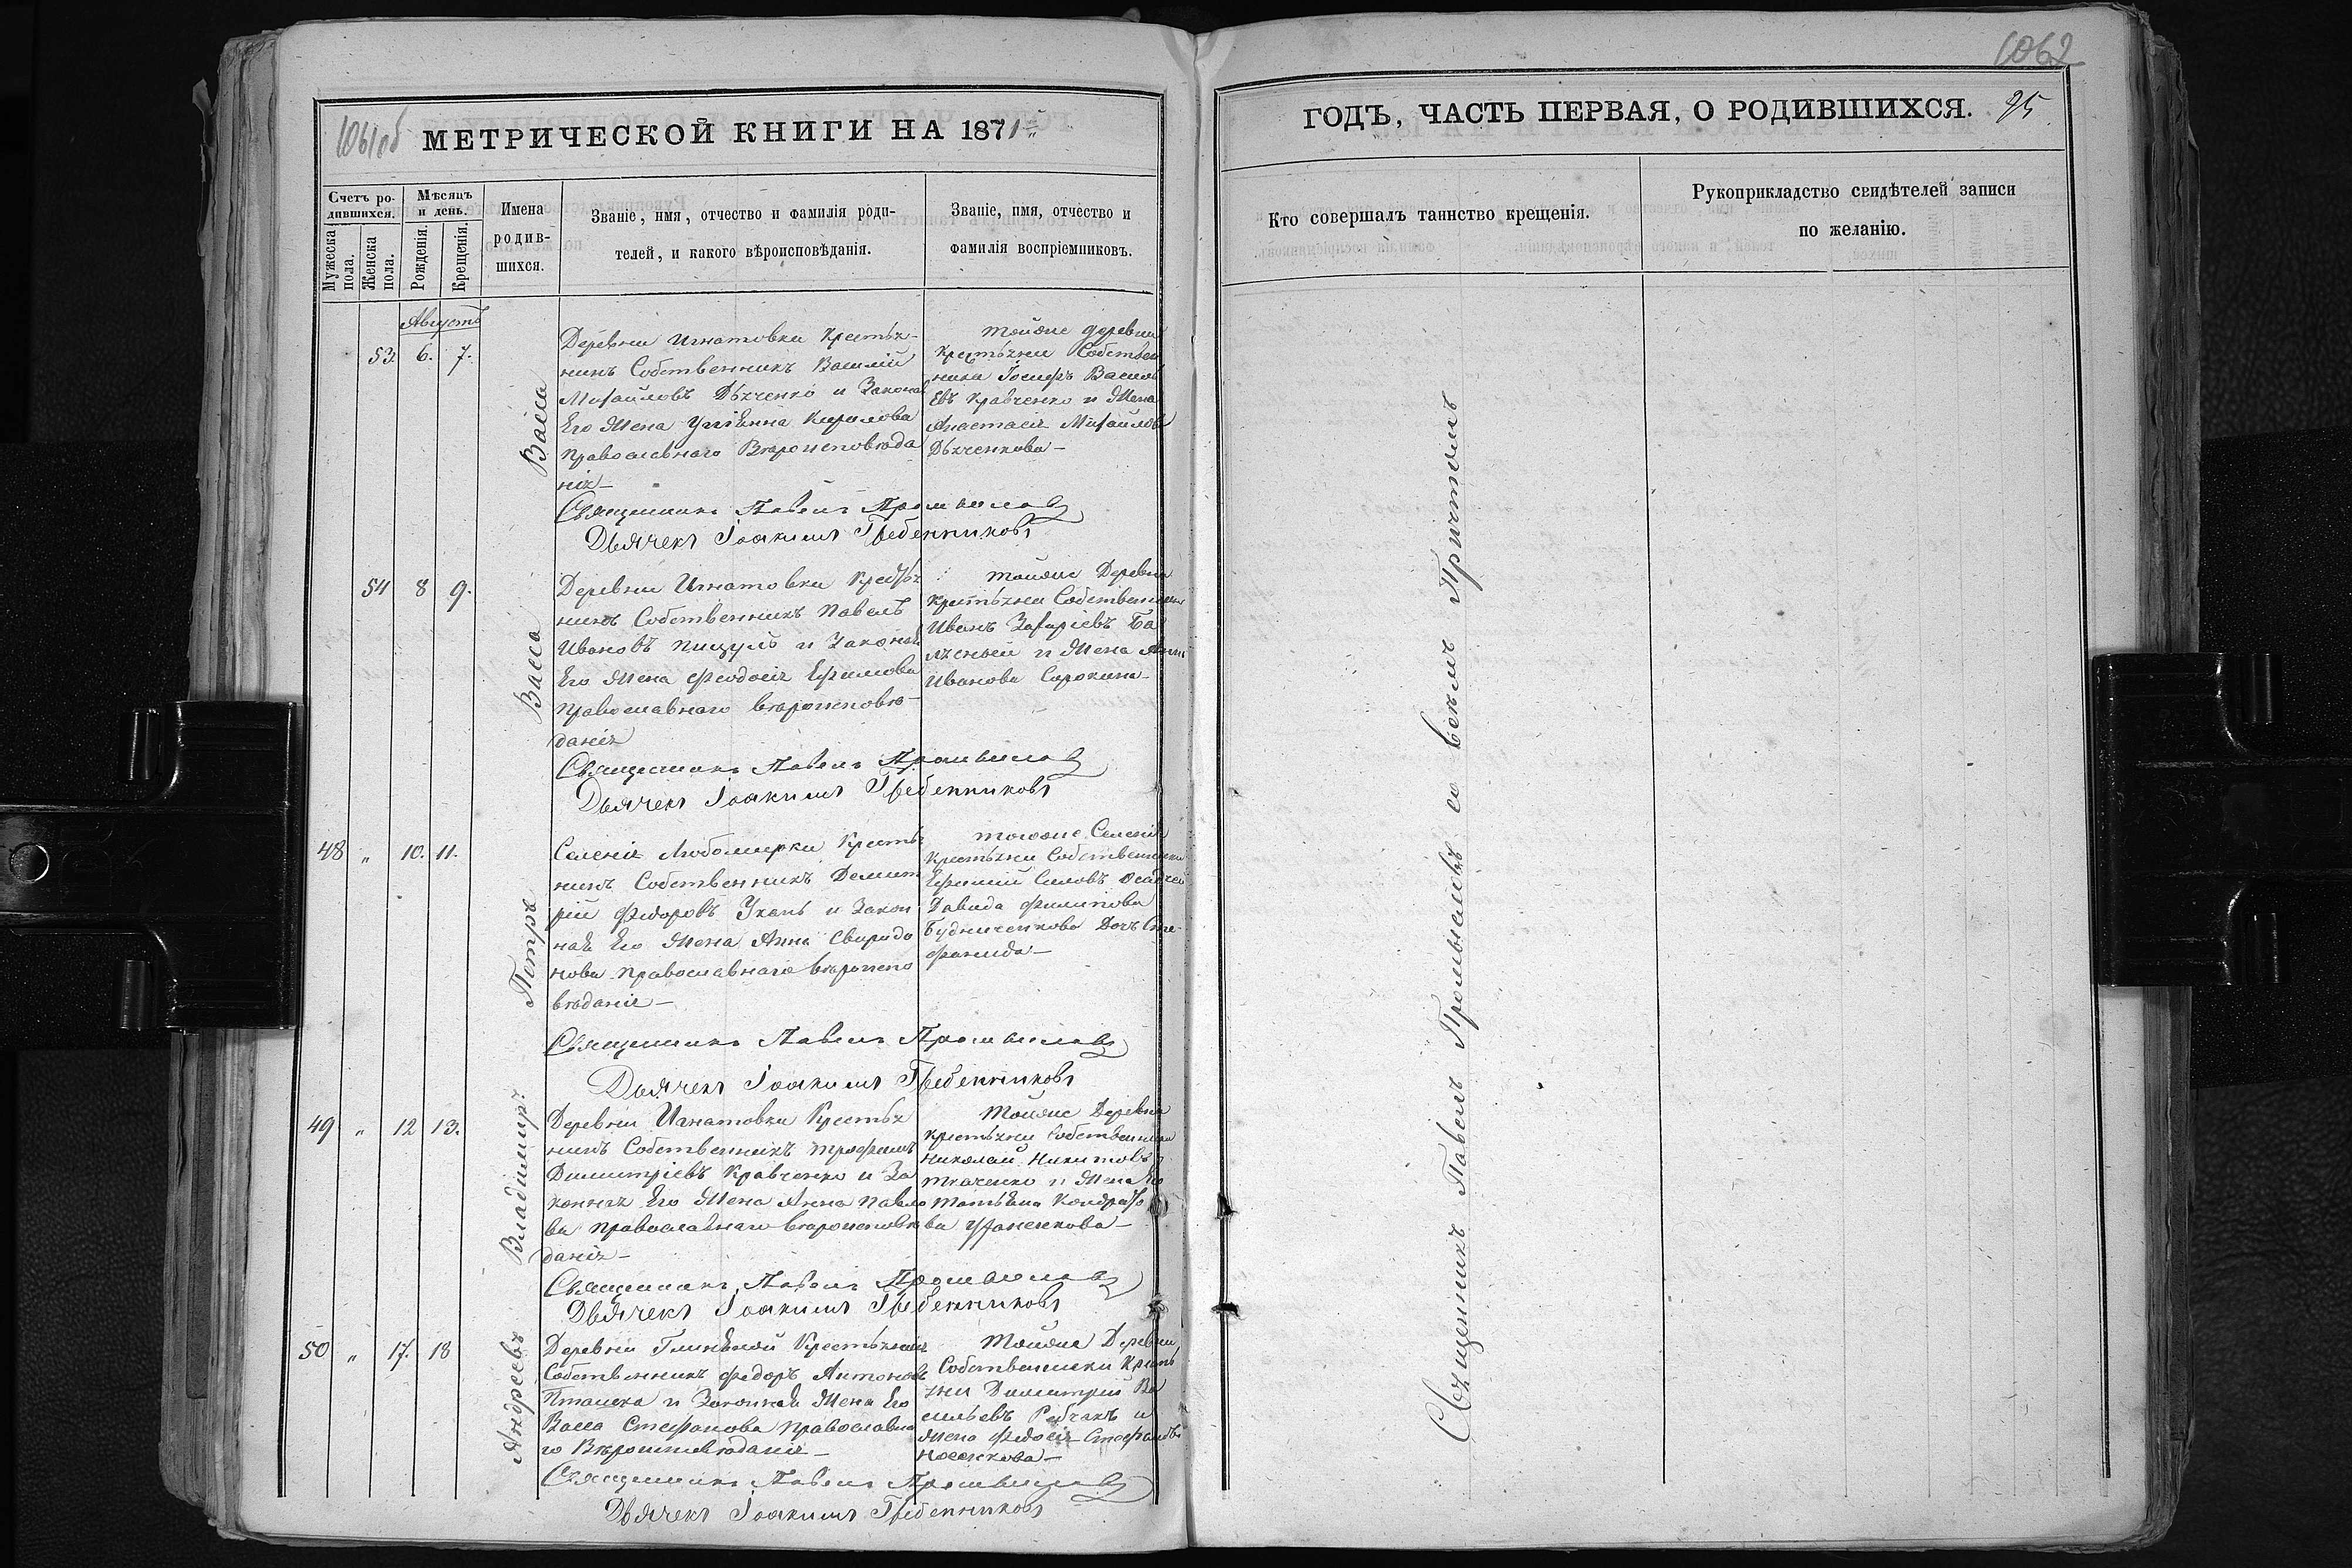 1061об МЕТРИЧЕСКОЙ КНИГИ НА 1871
Счетъ ро-
дившихся.
Мужеска пола.
Женска пола.
Мѣсяцъ
и день.
Рожденія.
Крещенія.
Имена
родив-
шихся.
Званіе, имя, отчество и фамилія роди-
телей, и какого вѣроисповѣданія.
Званіе, имя, отчество и
фамилія воспріемниковъ.
Августъ
53. 6. 7.
Васса
Деревни Игнатовки Крестья-
нинъ Собственникъ Василій
Михайловъ Дяченко и Законая
Его Жена Уліянна Кирилова
православнаго Вѣроисповѣда
нія
тойже деревни
крестьяне Собствен
ника Іосифъ Васил
евъ Кравченко и Жена
Анастасія Михайлова
Дяченкова
Священникъ Павелъ Промысловъ
Дьячекъ Іоакимъ Гребенниковъ
54 8 9.
Васса
Деревни Игнатовки Крестья
нинъ Собственникъ Павелъ
Ивановъ Пищулъ и Законая
Его Жена Феодосія Ефимова
православнаго вѣроисповѣ-
данія
тойже Деревни
крестьяне Собственники
Иванъ Захаріевъ
и Жена Анна
Иванова Сорокина
Священникъ Павелъ Промысловъ
Дьячекъ Іоакимъ Гребенниковъ
48 „ 10. 11.
Петръ
Селенія Любомирки Крестья
нинъ Собственникъ Демит
рій Федоровъ и Закон
ная Его Жена Анна Свиридо
нова православнаго вѣроиспо
вѣданія
тогоже Селенія
Крестьяне Собственники
Ефимій Силовъ Осадчей
Давида Филипова
Будниченкова Дочъ Сте-
фанида
Священникъ Павелъ Промысловъ
Дьячекъ Іоакимъ Гребенниковъ
49 „ 12 13.
Владимиръ
Деревни Игнатовки Крестья
нинъ Собственникъ Трофимъ
Димитріевъ Кравченко и За
конная Его Жена Анна Павло
ва православнаго вѣроисповѣ
данія
Тойже Деревни
крестьяне Собственники
Николай Никитовъ
Ткаченко и Жена Его
Татьяна Кондрать
ва
Священникъ Павелъ Промысловъ
Дьячекъ Іоакимъ Гребенниковъ
50 „ 17. 18
Андреевъ
Деревни Глиняной Крестьянинъ
Собственникъ Федоръ Антоновъ
Пташка и Законная Жена Его
Васса Стефанова православна
го Вѣроисповѣданія
Тойже Деревни
Собственники Кресть
яни Димитрій Ва
сильевъ Рябчакъ и
Жена Федосія Стефанова
Носенкова
Священникъ Павелъ Промысловъ
Дьячекъ Іоакимъ Гребенниковъ
1062
ГОДЪ, ЧАСТЬ ПЕРВАЯ, О РОДИВШИХСЯ. 25
Кто совершалъ таинство крещенія.
Рукоприкладство свидѣтелей записи
по желанію.
Священникъ Павелъ Промысловъ со всемъ Причтомъ